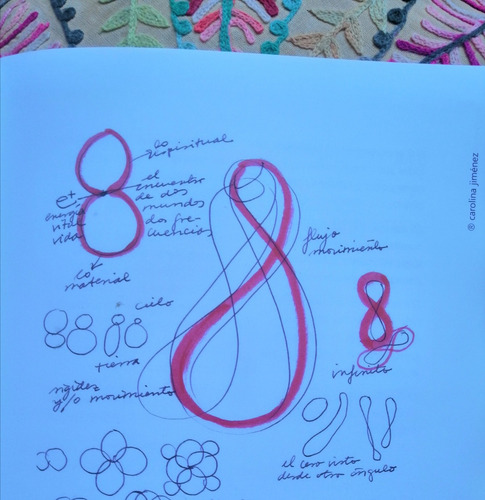 lo espiritual
el encuentro
de dos
mundos
dos fre-
cuencias
e+
energía
vital
vida
lo material
flujo
movimiento
* cielo
tierra
rigidez
y/o movimiento
infinito
el cero visto
desde otro ángulo
® carolina jiménez